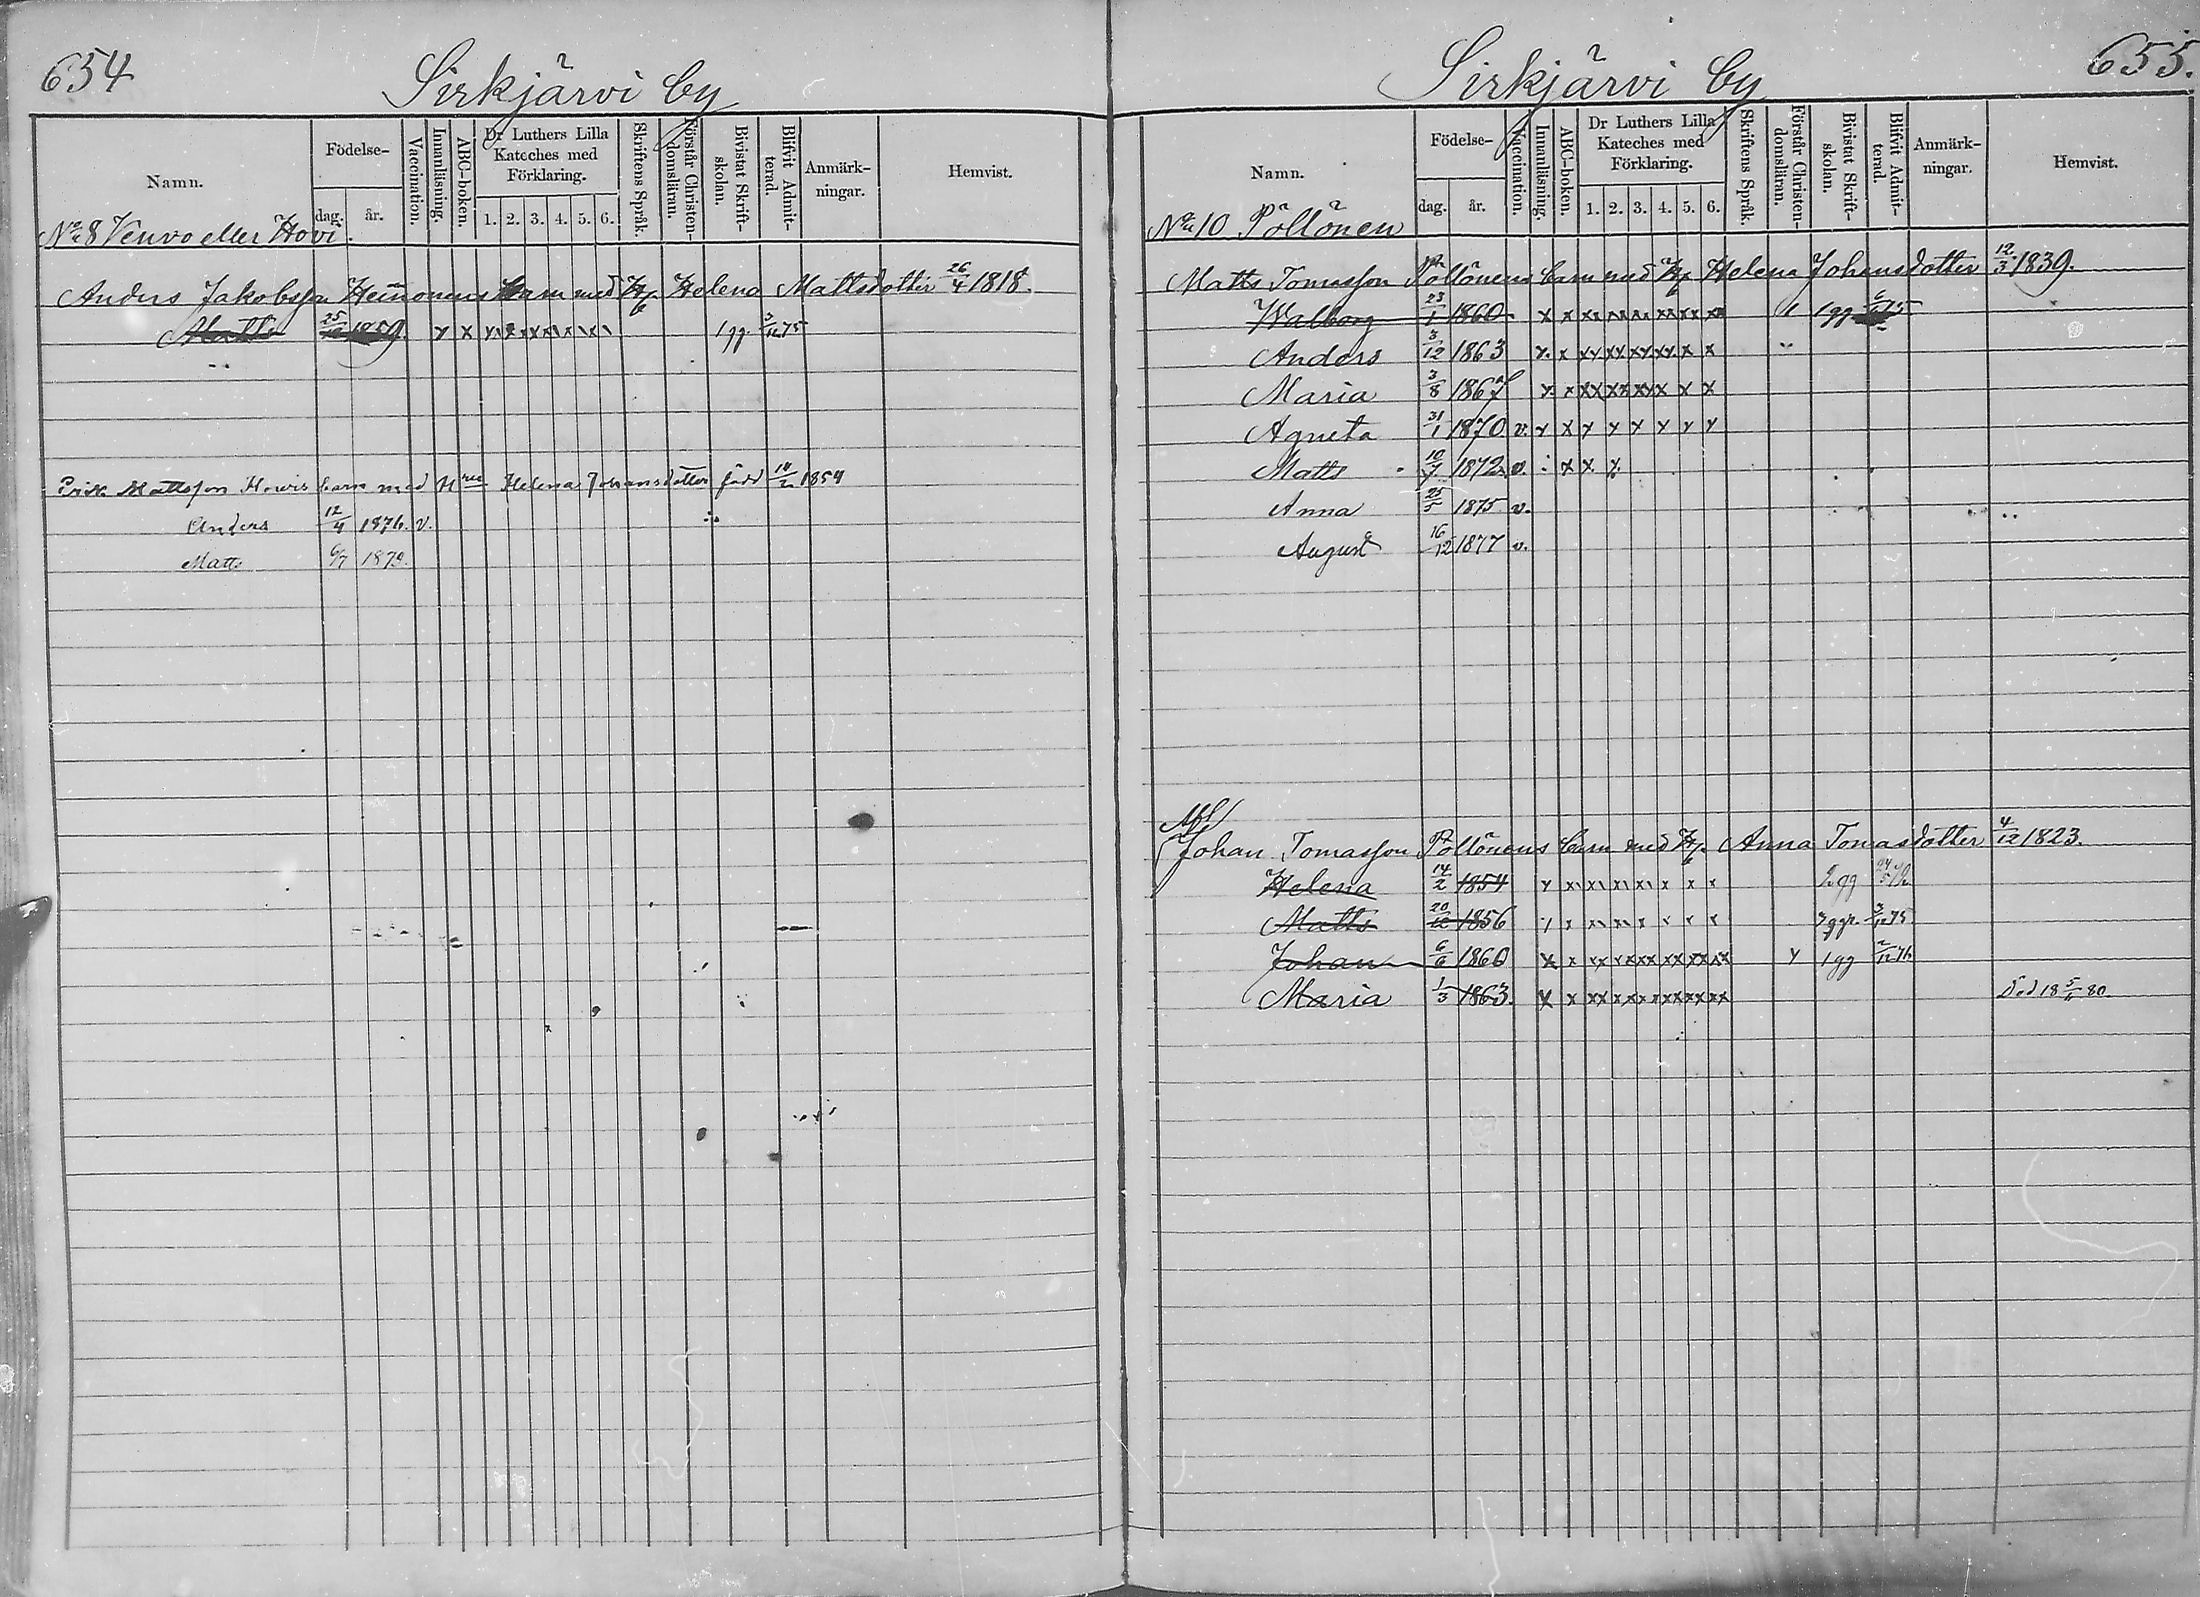 654
Sirkjärvi by
Namn.
Födelse-
dag. år.
Vaccination.
Innanläsning.
ABC-boken.
Dr Luthers Lilla
Kateches med
Förklaring.
1. 2. 3. 4. 5. 6.
Skriftens Språk.
Förstår Christen-
domsläran.
Bivistat Skrift-
skolan.
Blifvit Admit-
terad.
Anmärk-
ningar.
Hemvist.
No 8 Venvo eller Hovi.
Anders Jakobsson Heinonens barn med Helena Mattsdotter 26/4 1818.
Matts 1859. x x x x x x x x 1 gg 3/12 75
Erik Mattsson Howis barn med Helena Johansdotter född 14/2 1854
Anders 12/4 1876. v.
Matts 6/7 1879.
655.
Sirkjärvi by
Namn.
Födelse-
dag. år.
Vaccination.
Innanläsning.
ABC-boken.
Dr Luthers Lilla
Kateches med
Förklaring.
1. 2. 3. 4. 5. 6.
Skriftens Språk.
Förstår Christen-
domsläran.
Bivistat Skrift-
skolan.
Blifvit Admit-
terad.
Anmärk-
ningar.
Hemvist.
No 10 Pöllönen
Matts Tomasson Pöllönens barn med Helena Johansdotter 12/3 1839.
Walborg 23/1 1860 x x xx xx xx xx xx xx 1 gg
Anders 3/12 1863 x x xx xx xx xx x x
Maria 3/8 1867 x x xx xx xx x x x
Agneta 31/1 1870 v. x x x x x x x x
Matts 10/7 1872 v. x x x
Anna 25/5 1875 v.
August 16/12 1877 v.
Johan Tomasson Pöllönens barn med Anna Tomasdotter 4/12 1823.
Helena 14/2 1854 x x x x x x x x 2 gg
Matts 20/12 1856 x x x x x x x x 3 ggr. 3/12 75
Johan 6/6 1860 x x xx xx xx xx xx xx x 1 gg 2/12 76
Maria 1/3 1863. x x xx xx xx xx xx xx Död 18 80.